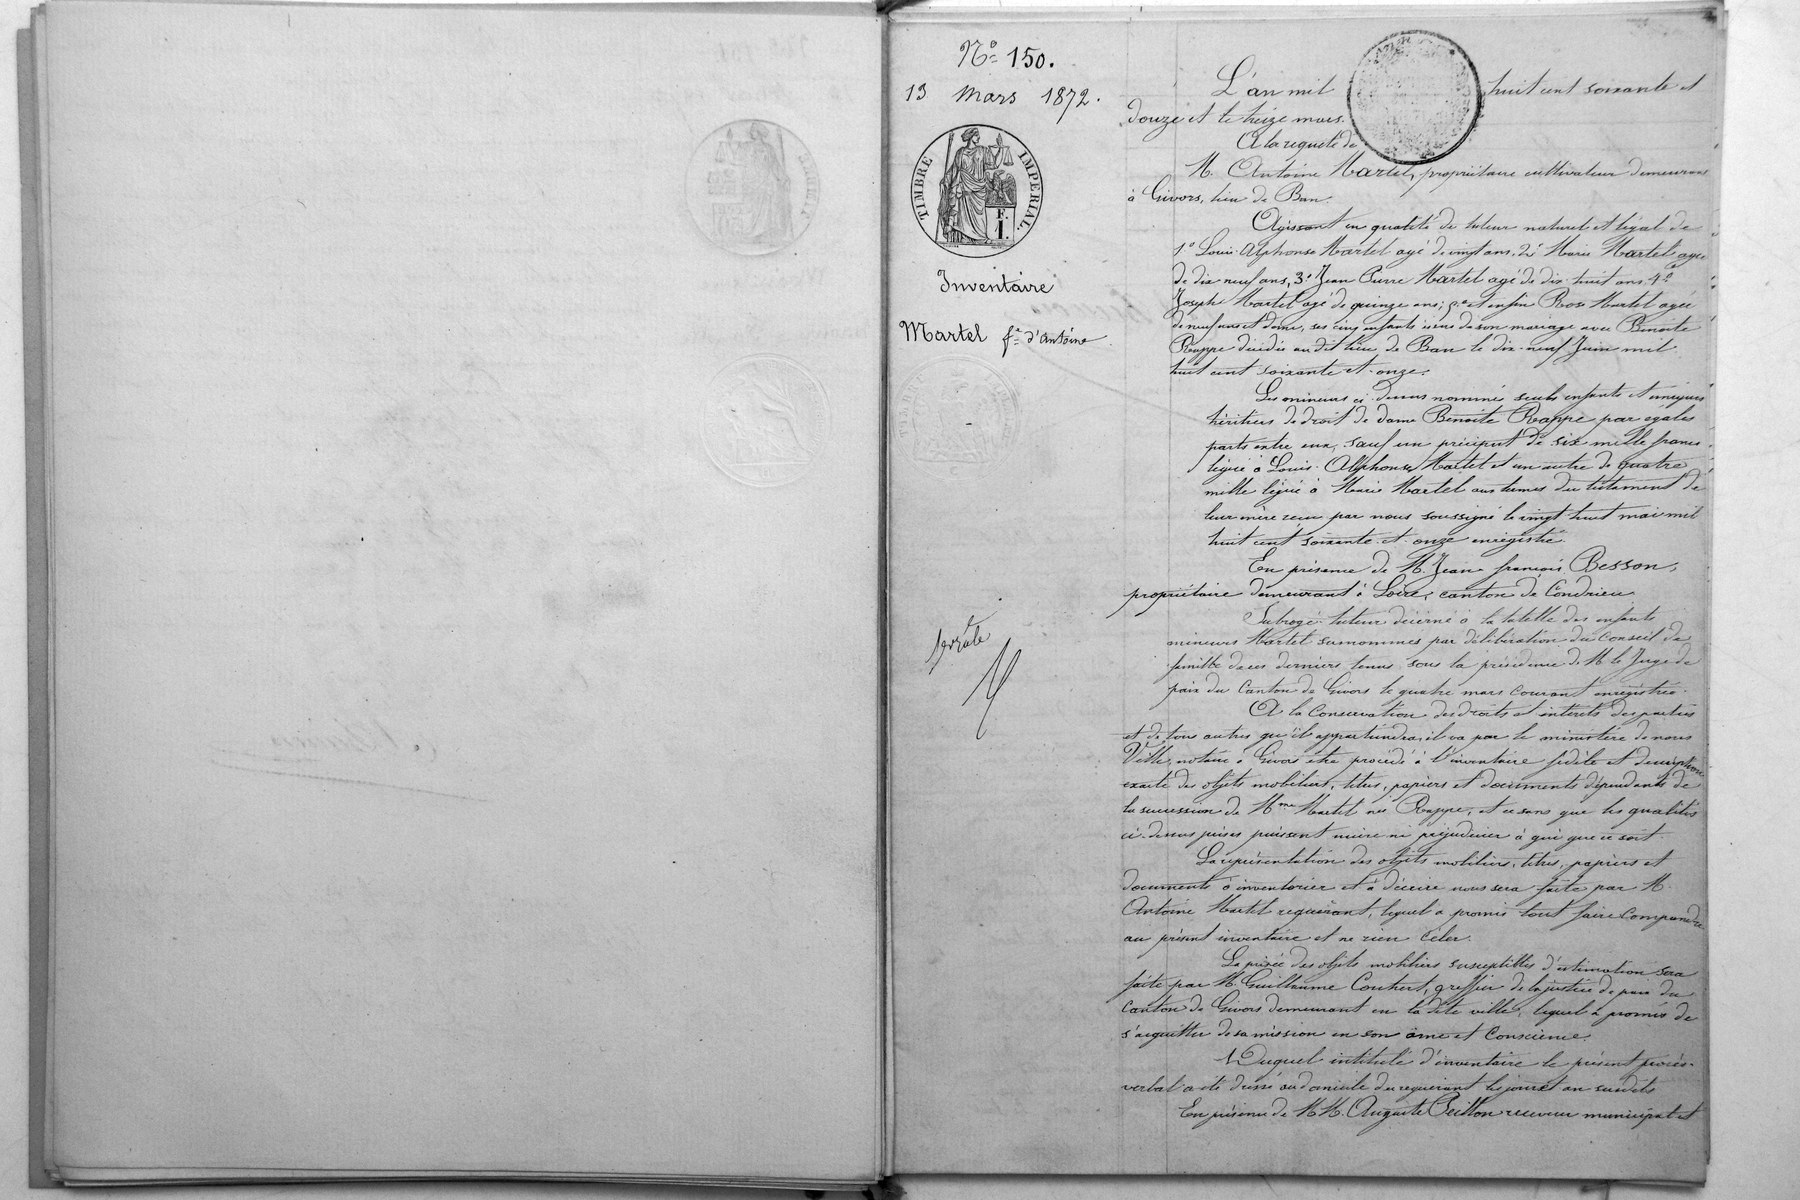 N° 150.
13 Mars 1872.
TIMBRE IMPERIAL.
F.
1.
Inventaire
Martel fe d'Antoine
L'an mil huit cent soixante et
douze et le treize mars.
A la requête de
M. Antoine Martel, propriétaire cultivateur demeurant
à Givors, lieu de Ban.
Agissant en qualité de tuteur naturel et légal de
1° Louis-Alphonse Martel agé de vingt ans, 2° Marie Martel agée
de dix neuf ans, 3° Jean Pierre Martel agé de dix-huit ans, 4°
Joseph Martel agé de quinze ans; 5° et enfin Rose Martel agée
de neuf ans et demi, ses cinq enfants issus de son mariage avec Benoite
Rappe décédée au dit lieu de Ban le dix-neuf Juin mil
huit cent soixante et onze.
Les mineurs ci-dessus nommés seuls enfants et uniques
héritiers de droit de dame Benoite Rappe par égales
parts entre eux, sauf un préciput de six mille francs
légué à Louis-Alphonse Martel et un autre de quatre
mille légué à Marie Martel aux termes du testament de
leur mère reçu par nous soussigné le vingt huit mai mil
huit cent soixante et onze enregistré.
En présence de M. Jean françois Besson,
propriétaire demeurant à Loire, canton de Condrieu
Subrogé-tuteur décerné à la tutelle des enfants
mineurs Martel surnommés par délibération du Conseil de
famille de ces derniers tenu sous la présidence de M. le Juge de
paix du Canton de Givors le quatre mars courant enregistrée.
A la Conservation des droits et intérêts des parties
et de tous autres qu'il appartiendra, il va par le ministère de nous
notaire à Givors être procédé à l'inventaire fidèle et description
exacte des objets mobiliers, titres, papiers et documents dépendants de
la succession de Mme Martel née Rappe, et ce sans que les qualités
ci-dessus prises puissent nuire ni préjudicier à qui que ce soit.
La représentation des objets mobiliers, titres, papiers et
documents à inventorier et à décrire nous sera faite par M.
Antoine Martel requérant, lequel a promis tout faire comprendre
au présent inventaire et ne rien céler.
La prisée des objets mobiliers susceptibles d'estimation sera
faite par M. Guillaume greffier de la justice de paix du
Canton de Givors demeurant en la dite ville, lequel a promis de
s'acquitter de sa mission en son âme et Conscience.
Duquel intitulé d'inventaire le présent procès-
verbal a été dressé au domicile du requérant les jour et an susdits
En présence de MM. Auguste Peillon receveur municipal et